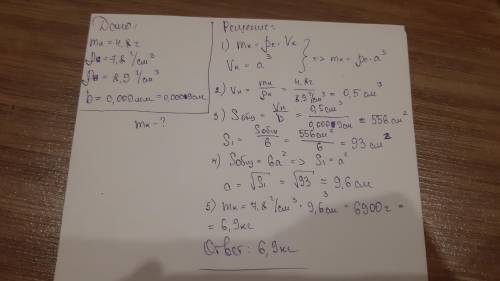 Дано:
mн = 4,8г
ρс = 7,8 г/см³
ρн = 8,9 г/см³
b = 0,009мм = 0,0009см
mк - ?
Решение:
1) mк = ρс · Vк
Vк = a³ } => mк = ρс · a³
2) Vн = mн/ρн = 4,8г/8,9 г/см³ = 0,5 см³
3) Sобщ = Vн/b = 0,5см³/0,0009см = 556см²
S₁ = Sобщ/6 = 556см²/6 = 93 см²
4) Sобщ = 6a² => S₁ = a²
a = √S₁ = √93 ≈ 9,6 см
5) mк = 7,8 г/см³ · 9,6³см = 6900г =
= 6,9кг
Ответ: 6,9кг